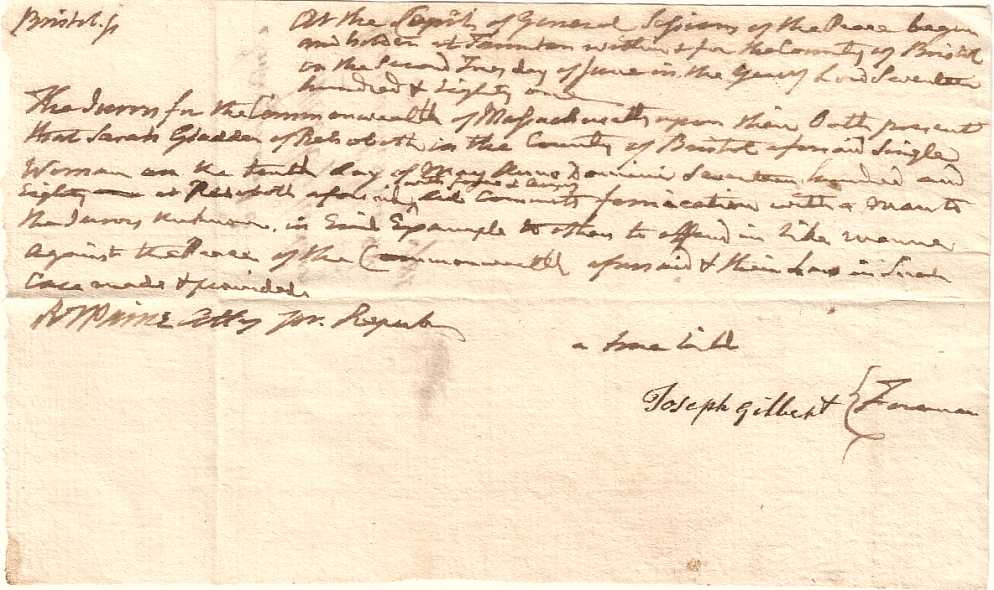 Bristol ss
At the Court of General Sessions of the Peace begun
and holden at Taunton within & for the County of Bristol
on the Second Tuesday of June in the year of Lord Seventeen
hundred & Eighty one
The Jurors for the Commonwealth of Massachusetts upon their Oath present
that Sarah of Rehoboth in the County of Bristol aforesaid Single
Woman on the tenth day of May Anno Domini Seventeen hundred and
Eighty at Rehoboth aforesaid did Commit fornication with a man to
the Jurors unknown, in Evil Example to others to offend in like manner
against the Peace of the Commonwealth aforesaid & their Law in Such
Case made & provided
RTPaine Atty pr. Repub
a true bill
Joseph Gilbert { Foreman